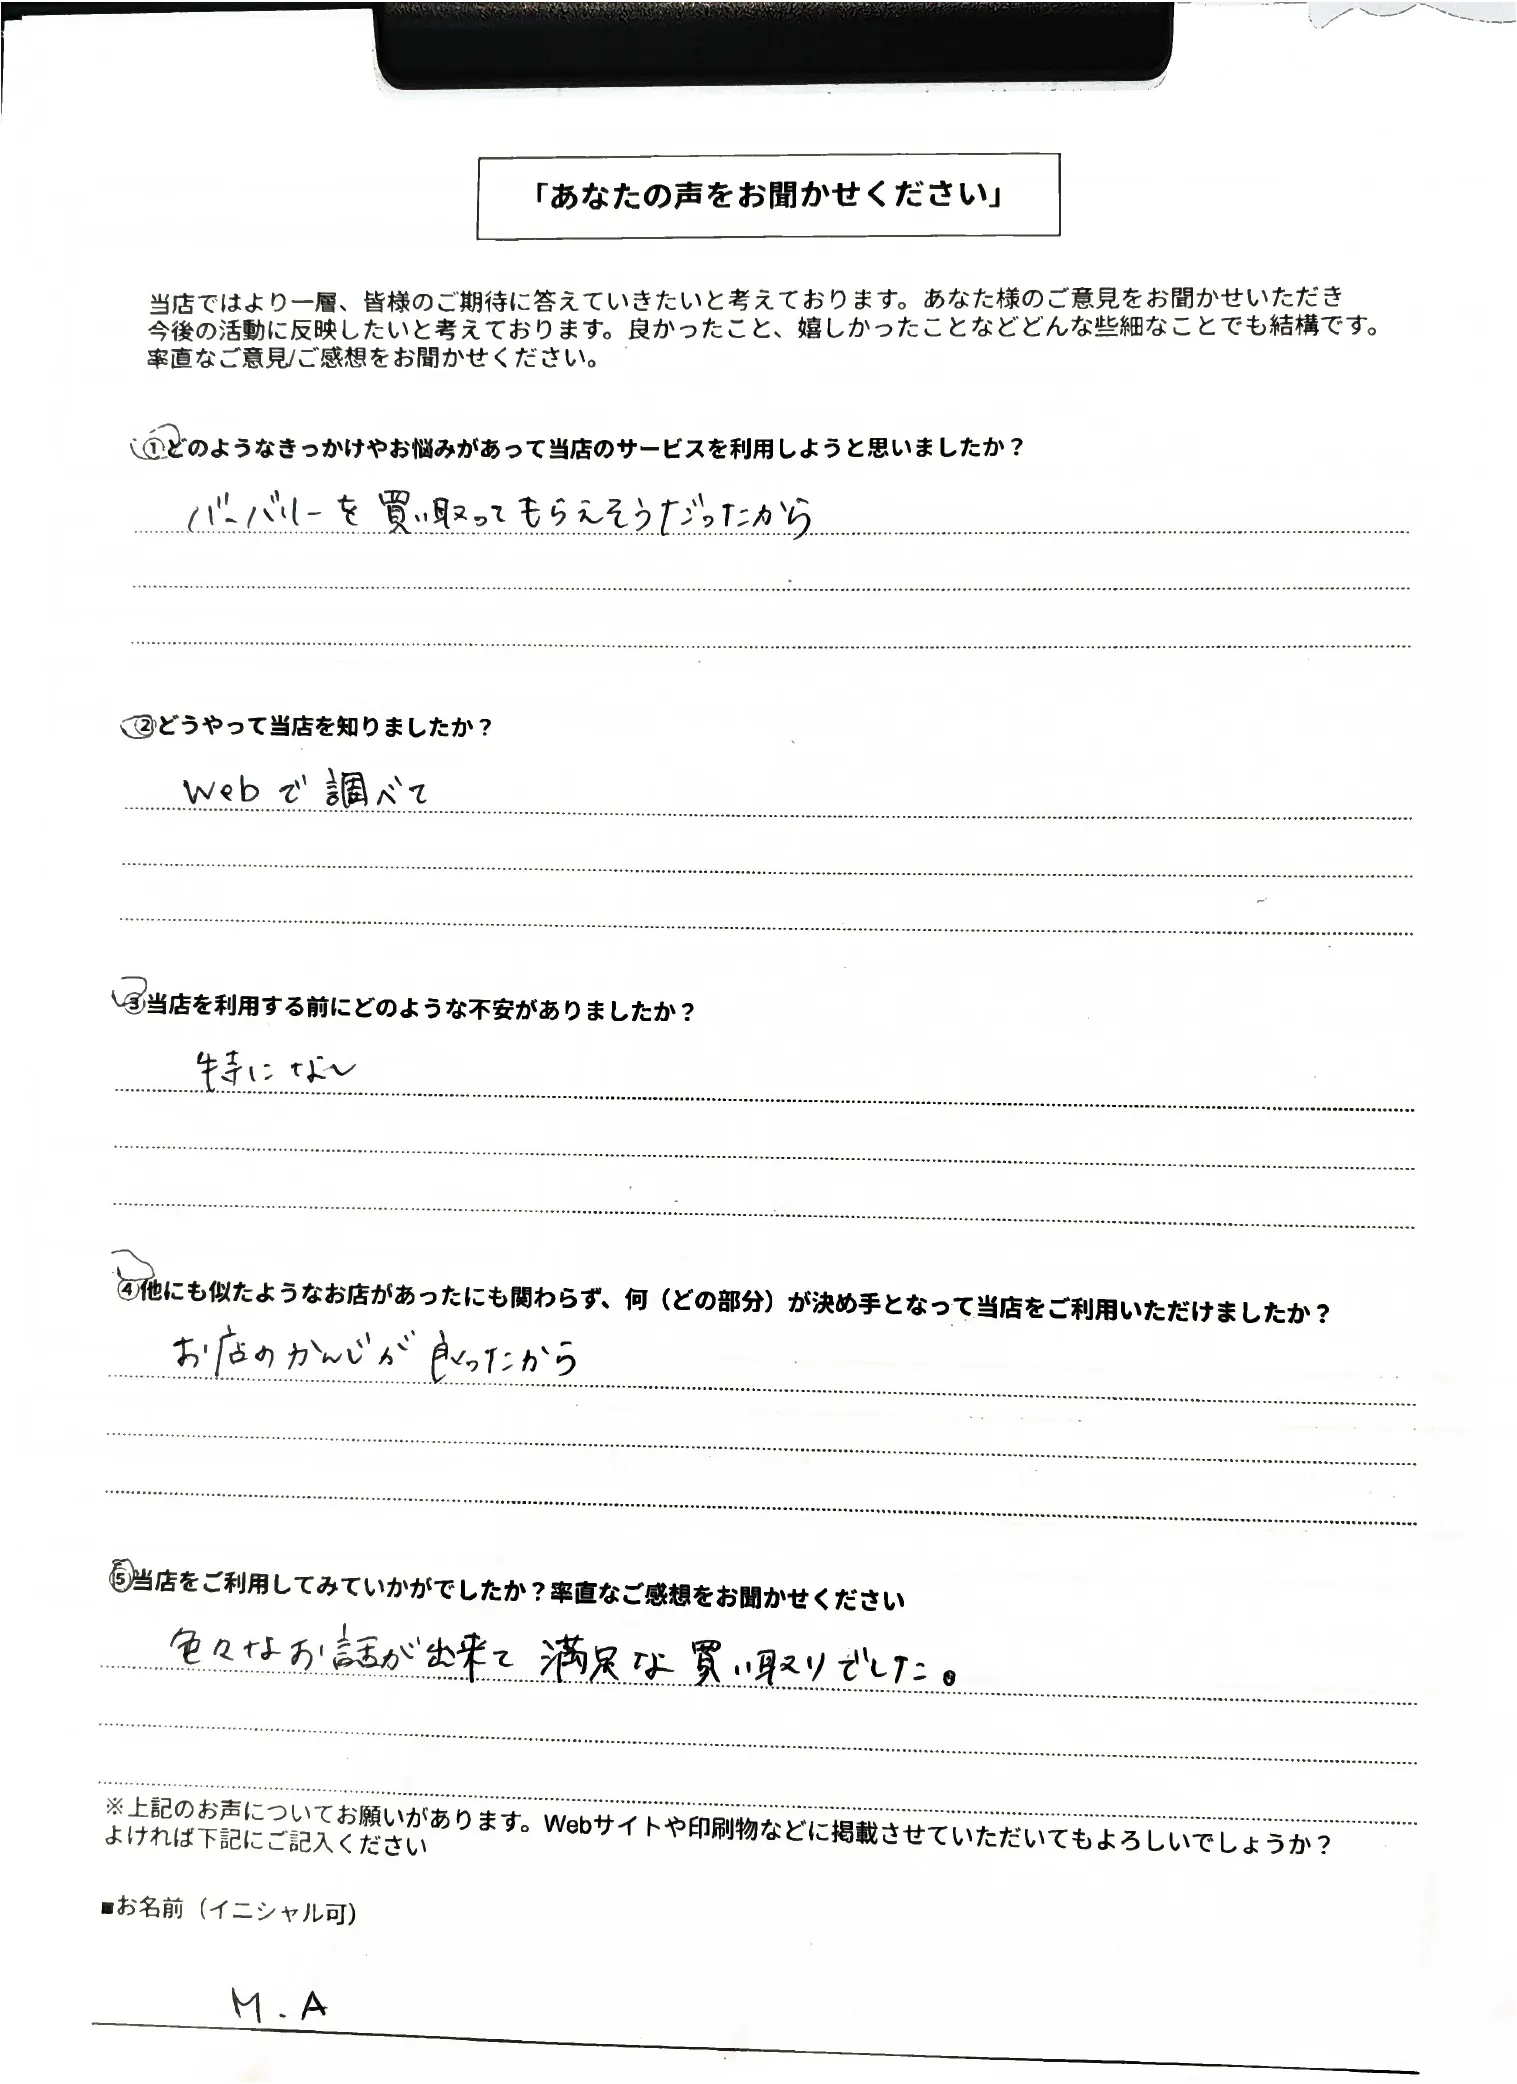 「あなたの声をお聞かせください」
当店ではより一層、皆様のご期待に答えていきたいと考えております。あなた様のご意見をお聞かせいただき
今後の活動に反映したいと考えております。良かったこと、嬉しかったことなどどんな些細なことでも結構です。
率直なご意見/ご感想をお聞かせください。
①どのようなきっかけやお悩みがあって当店のサービスを利用しようと思いましたか？
バーバリーを買い取ってもらえそうだったから
②どうやって当店を知りましたか？
Webで調べて
③当店を利用する前にどのような不安がありましたか？
特になし
④他にも似たようなお店があったにも関わらず、何（どの部分）が決め手となって当店をご利用いただけましたか？
お店のかんじが良かったから
⑤当店をご利用してみていかがでしたか？率直なご感想をお聞かせください
色々なお話が出来て満足な買い取りでした。
※上記のお声についてお願いがあります。Webサイトや印刷物などに掲載させていただいてもよろしいでしょうか？
よければ下記にご記入ください
■お名前（イニシャル可）
M.A